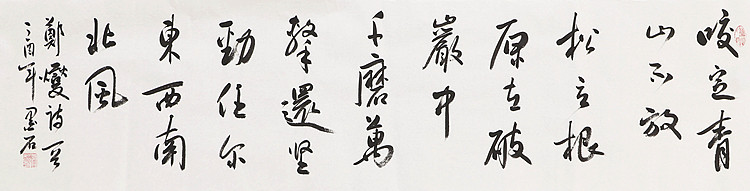 咬定青
山不放
松立根
原在破
巖中
千磨萬
擊還坚
勁任尔
東西南
北風
鄭燮詩
丁酉年墨石